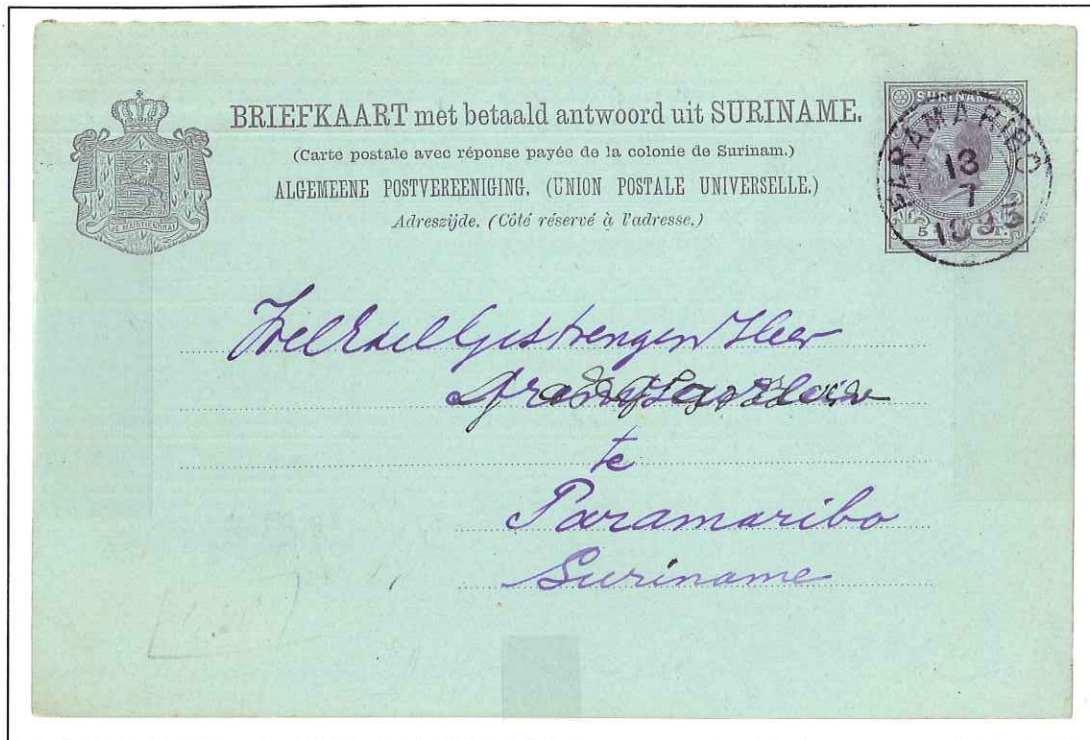 BRIEFKAART met betaald antwoord uit SURINAME.
(Carte postale avec réponse payée de la colonie de Surinam.)
ALGEMEENE POSTVEREENIGING. (UNION POSTALE UNIVERSELLE.)
Adreszijde. (Côté réservé à l'adresse.)
JE MAINTIENDRAI
SURINAME
PARAMARIBO
13
7
1893
WelEdelGestrengen Heer
te
Paramaribo
Suriname